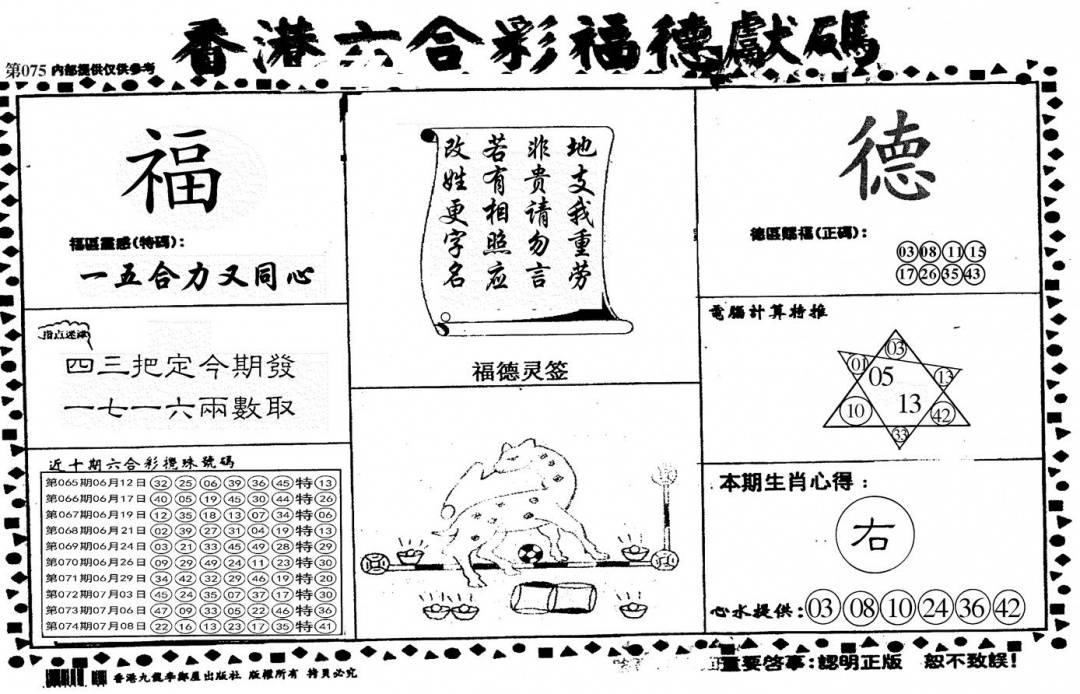 香港六合彩福德獻碼
第075 内部提供仅供参考
福
福區靈感(特碼):
一五合力又同心
指点迷津
四三把定今期發
一七一六兩數取
近十期六合彩攪珠號碼
第065期06月12日 32 25 06 39 36 45 特 13
第066期06月17日 40 05 19 45 30 44 特 26
第067期06月19日 12 35 18 13 07 34 特 06
第068期06月21日 02 39 27 31 04 19 特 13
第069期06月24日 03 21 33 45 49 28 特 29
第070期06月26日 09 29 49 24 11 23 特 30
第071期06月29日 34 42 32 29 46 19 特 20
第072期07月03日 45 24 35 07 37 17 特 30
第073期07月06日 47 09 33 05 22 46 特 36
第074期07月08日 22 16 13 23 17 35 特 41
地支我重劳
非贵请勿言
若有相照应
改姓更字名
福德灵签
德
德區賜福(正碼):
03 08 11 15
17 26 35 43
電腦計算特推
03
01 05 13
10 13 42
33
本期生肖心得:
右
心水提供: 03 08 10 24 36 42
香港九龍李鄭屋出版社 版權所有 拷貝必究
重要啓事:認明正版 恕不致誤!